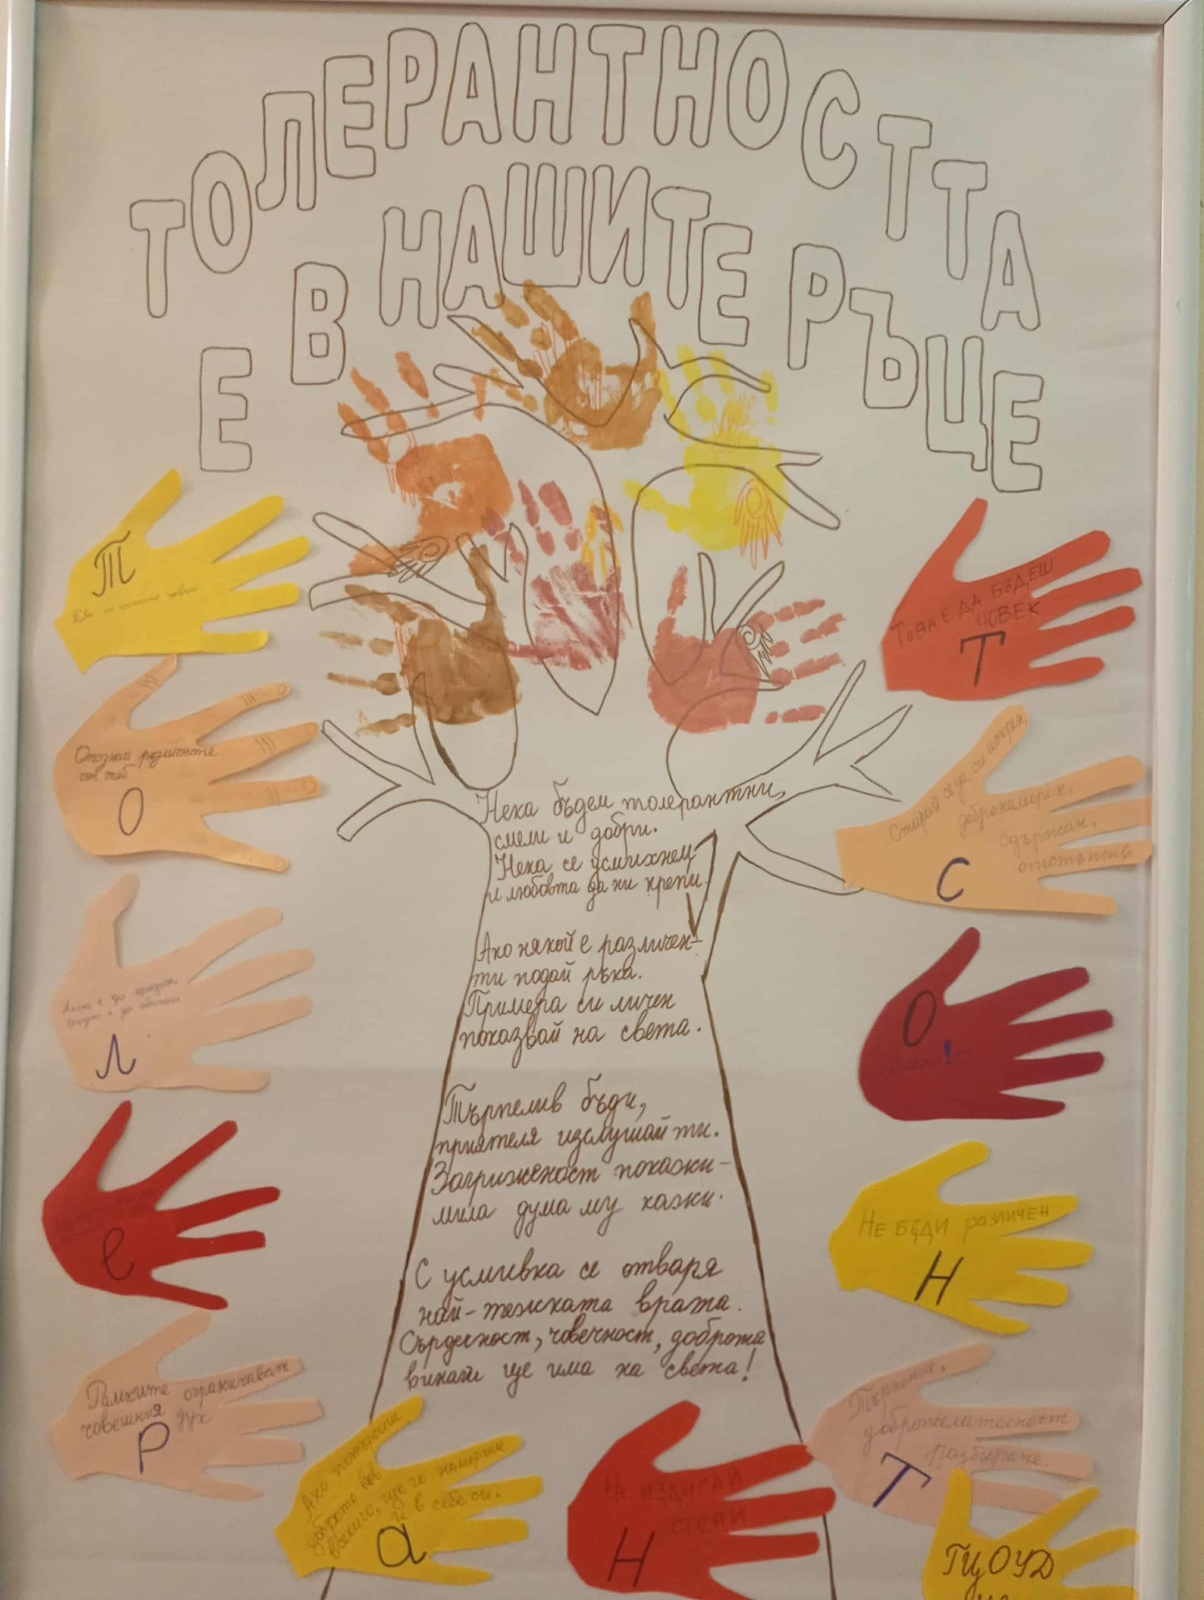 ТОЛЕРАНТНОСТТА
Е В НАШИТЕ РЪЦЕ
Т
О
Опознай различните
от теб
Л
Лесно е да мразиш,
трудно е да обичаш
е
Рамките ограничават
човешкия дух
Р
Ако потърсиш
доброто във
всекиго, ще го намериш
и в себе си.
а
Не издигай
стени
Н
Нека бъдем толерантни,
смели и добри.
Нека се усмихнем
и любовта да ни крепи.
Ако някой е различен-
ти подай ръка.
Примера си личен
показвай на света.
Търпелив бъди,
приятеля изслушай ти.
Загриженост покажи-
мила дума му кажи.
С усмивка се отваря
най-тежката врата.
Сърдечност, човечност, доброта
винаги ще има на света!
Това е да бъдеш
човек
Т
Старай се да си искрен,
добронамерен,
сдържан,
отстъпчив
С
О
Не бъди различен
Н
Търпение,
доброжелателност
Разбиране.
Т
ГЦОУД